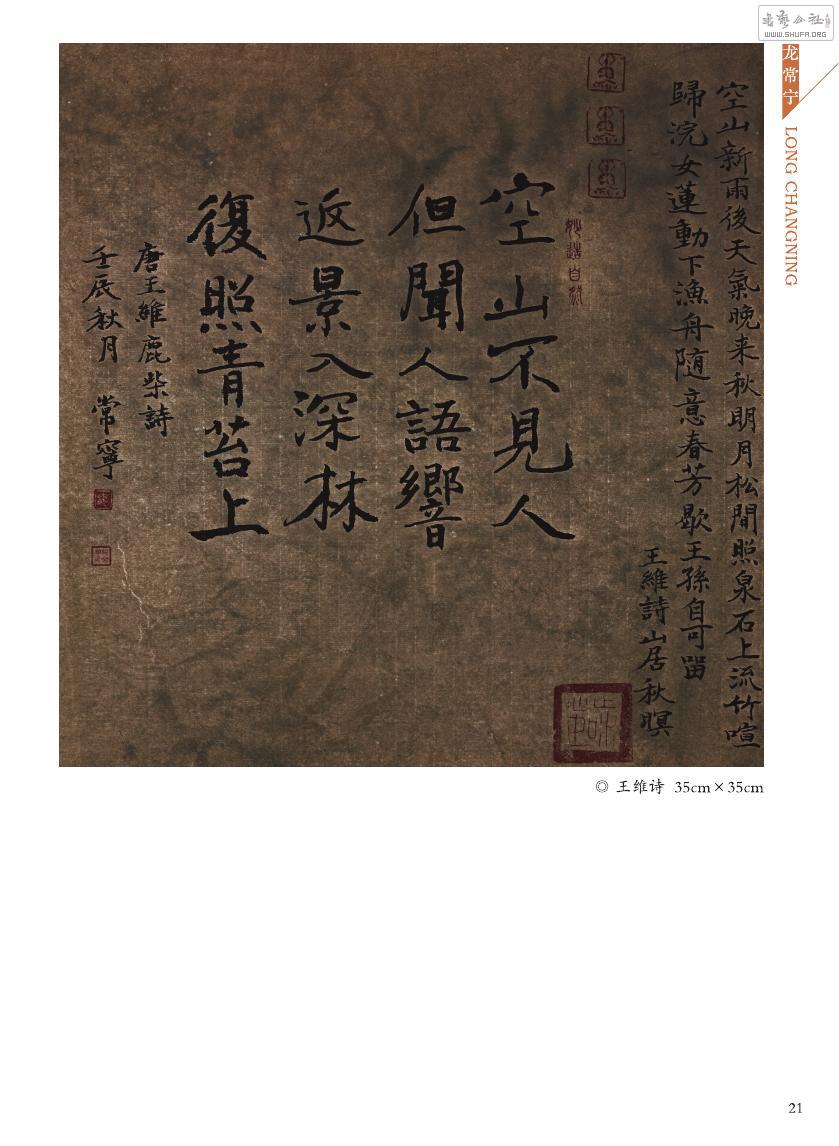 書藝公社
WWW.SHUFA.ORG
龙常宁
LONG CHANGNING
空山新雨後天氣晚来秋明月松間照泉石上流竹喧
歸浣女蓮動下漁舟隨意春芳歇王孫自可留
王維詩山居秋暝
妙造自然
空山不見人
但聞人語響
返景入深林
復照青苔上
唐王維鹿柴詩
壬辰秋月 常寧
◎ 王维诗 35cm×35cm
21